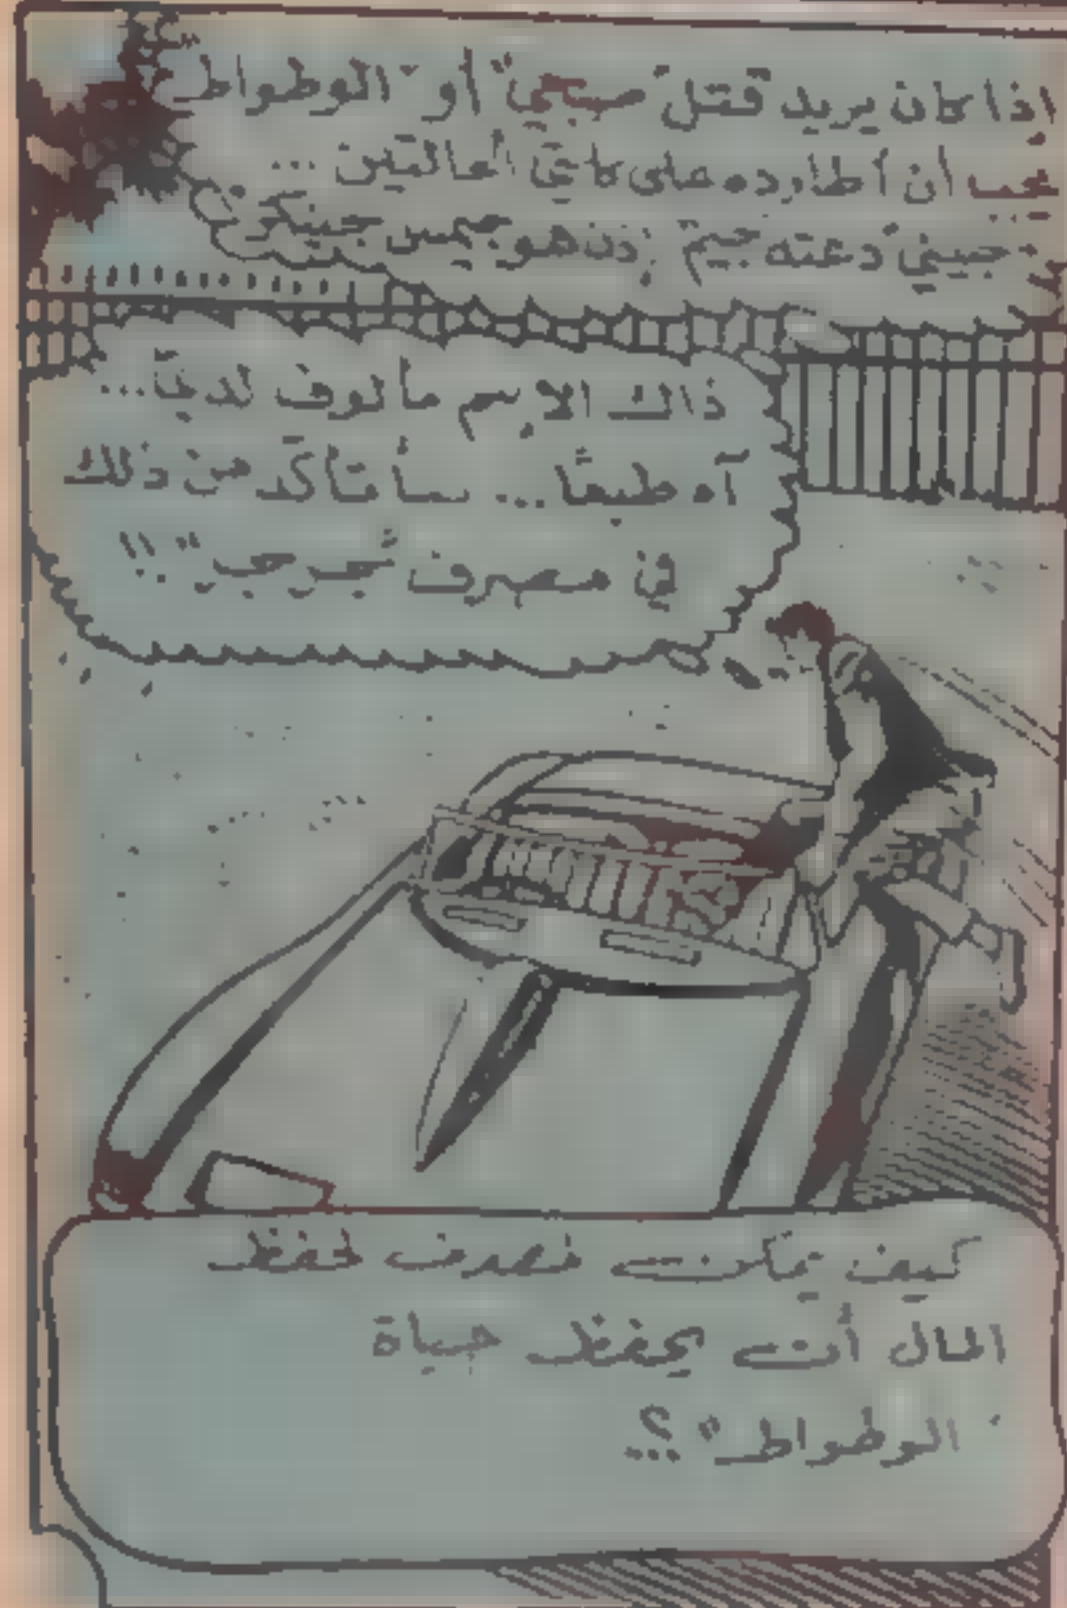 إذا كان يريد قتل "صبحي" أو "الوطواط"
يجب أن أطارده على كلتي الحالتين ...
جبيني دعته جيم إذن هو جيمس
ذاك الإسم مألوف لديّ...
آه طبعًا... سأتأكد من ذلك
في مصرف "جرجب"!!
كيف يمكن لمصرف لحفظ
المال أن يحفظ حياة
"الوطواط"؟..